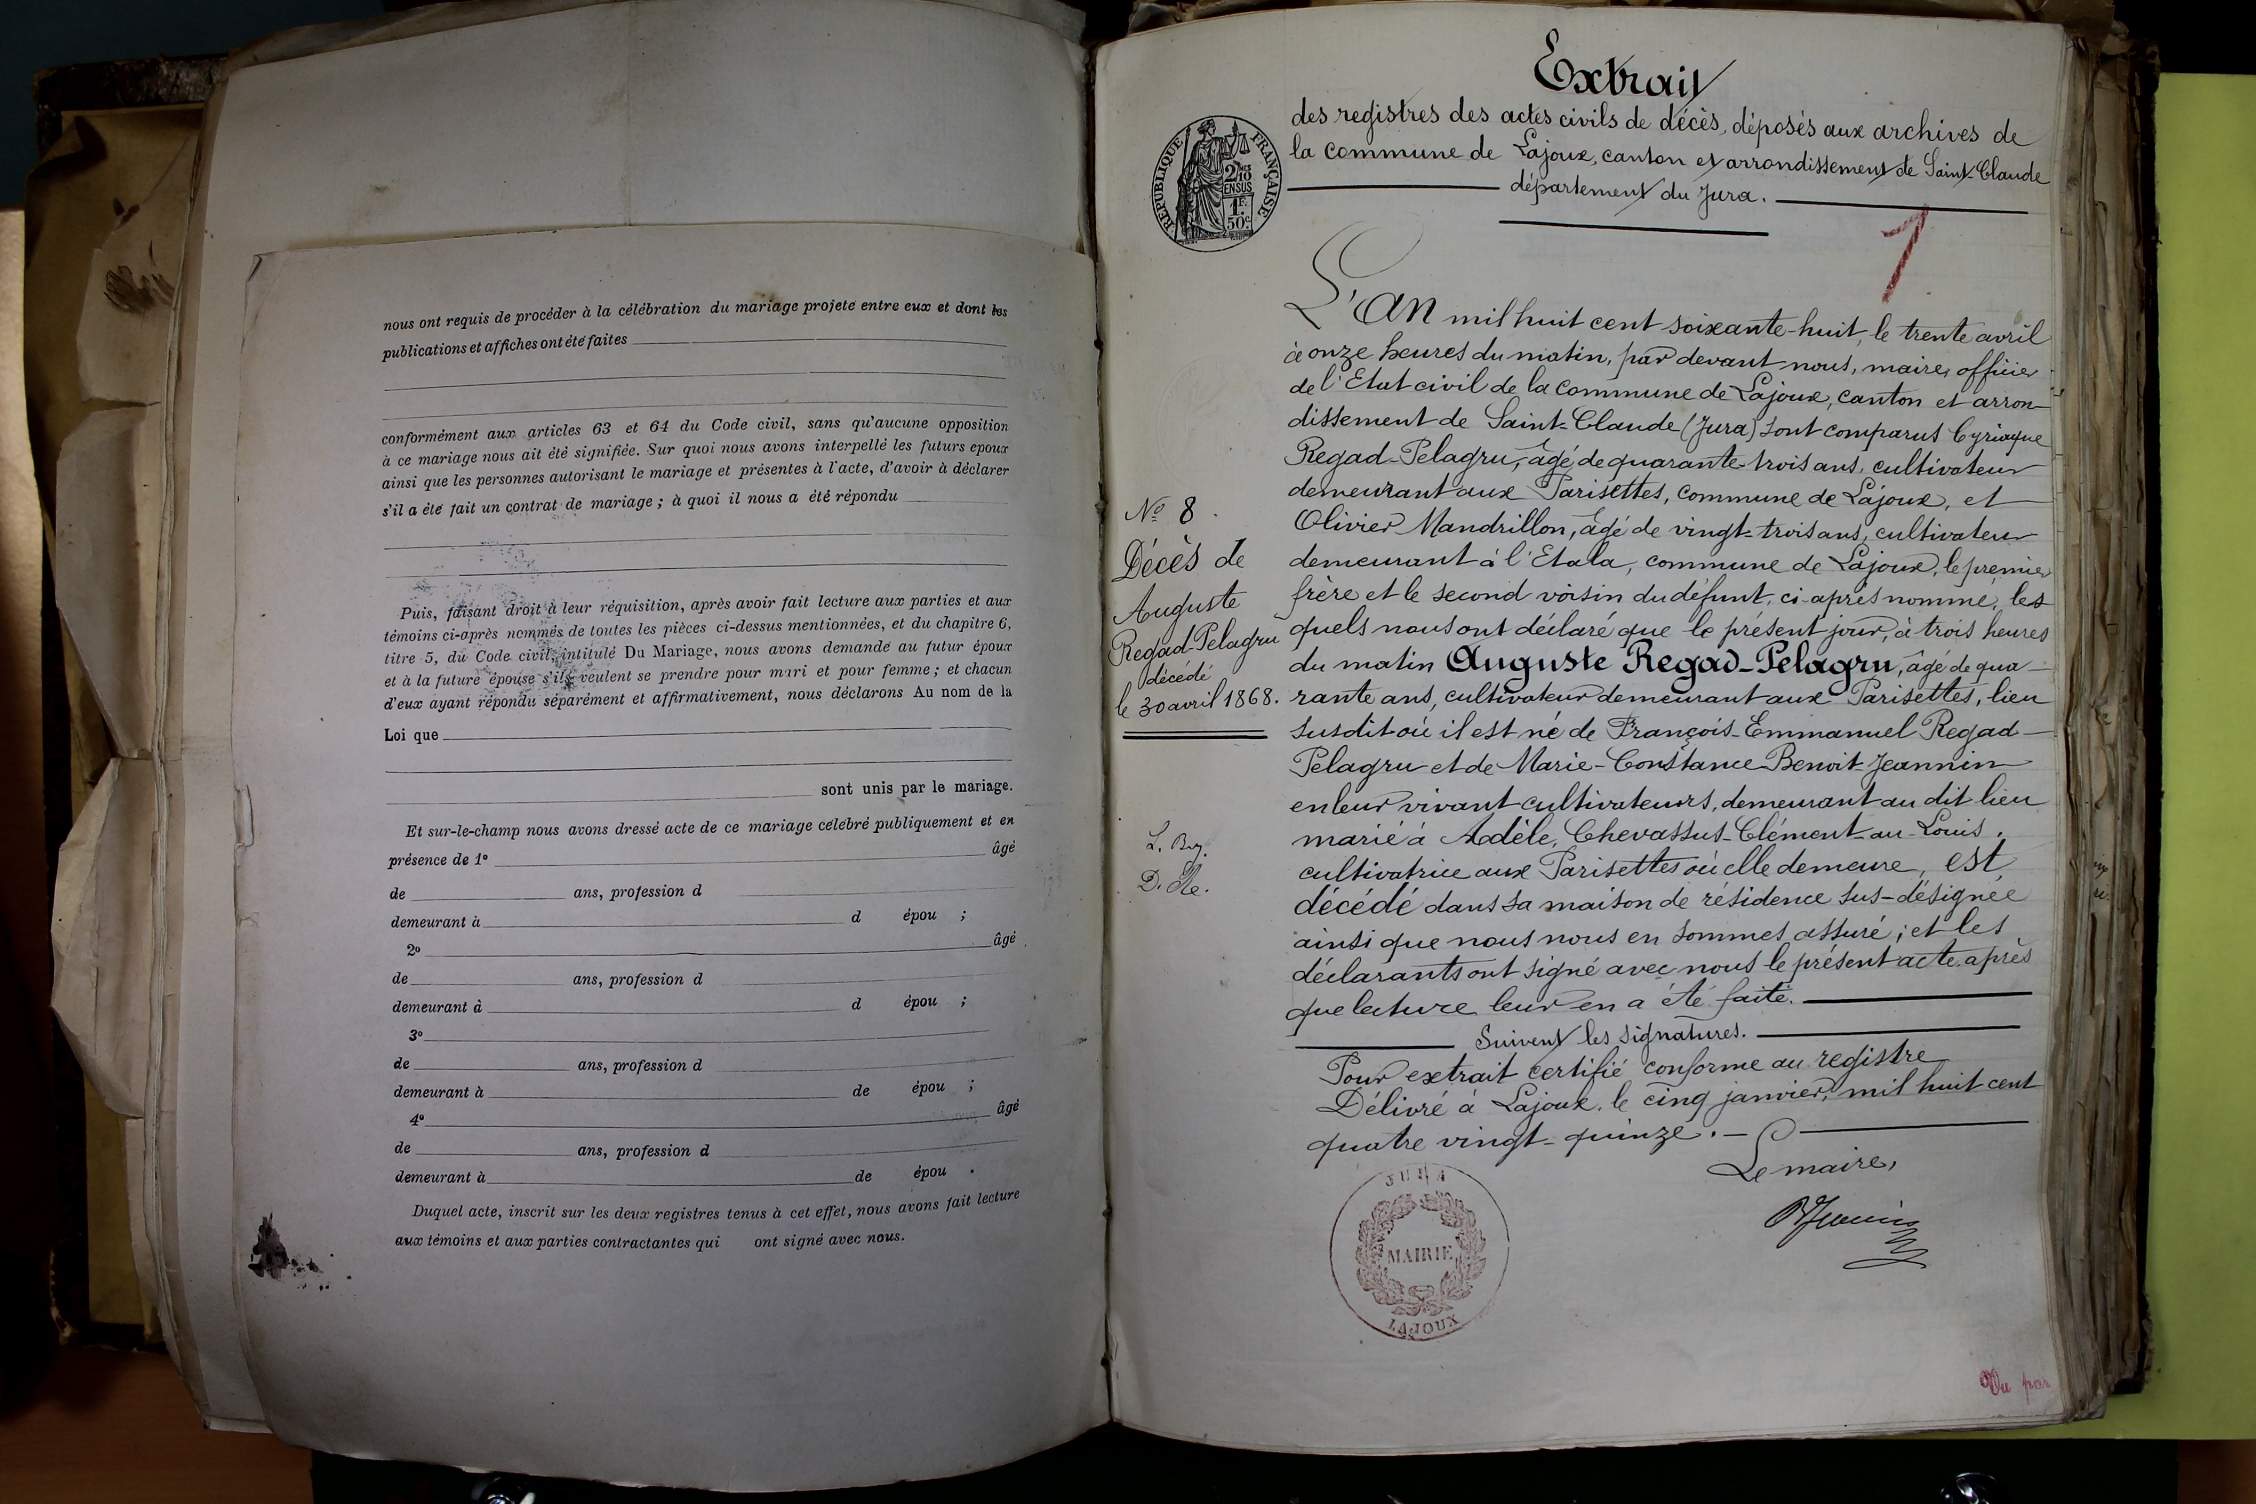 nous ont requis de procéder à la célébration du mariage projeté entre eux et dont les
publications et affiches ont été faites
conformément aux articles 63 et 64 du Code civil, sans qu'aucune opposition
à ce mariage nous ait été signifiée. Sur quoi nous avons interpellé les futurs époux
ainsi que les personnes autorisant le mariage et présentes à l'acte, d'avoir à déclarer
s'il a été fait un contrat de mariage ; à quoi il nous a été répondu
Puis, faisant droit à leur réquisition, après avoir fait lecture aux parties et aux
témoins ci-après nommés de toutes les pièces ci-dessus mentionnées, et du chapitre 6,
titre 5, du Code civil, intitulé Du Mariage, nous avons demandé au futur époux
et à la future épouse s'ils veulent se prendre pour mari et pour femme ; et chacun
d'eux ayant répondu séparément et affirmativement, nous déclarons Au nom de la
Loi que
sont unis par le mariage.
Et sur-le-champ nous avons dressé acte de ce mariage célébré publiquement et en
présence de 1º âgé
de ans, profession d
demeurant à d épou ;
2º âgé
de ans, profession d
demeurant à d épou ;
3º
de ans, profession d
demeurant à de épou ;
4º âgé
de ans, profession d
demeurant à de épou .
Duquel acte, inscrit sur les deux registres tenus à cet effet, nous avons fait lecture
aux témoins et aux parties contractantes qui ont signé avec nous.
Extrait
des registres des actes civils de décès, déposés aux archives de
la commune de Lajoux, canton et arrondissement de Saint-Claude
département du Jura.
RÉPUBLIQUE FRANÇAISE
2/10
EN SUS
1F.
50c.
1
L'An mil huit cent soixante-huit, le trente avril
à onze heures du matin, par devant nous, maire, officier
de l'Etat civil de la commune de Lajoux, canton et arron-
dissement de Saint-Claude (Jura) sont comparus Cyriaque
Regad-Pelagru, âgé de quarante-trois ans, cultivateur
demeurant aux Parisettes, commune de Lajoux, et
Olivier Mandrillon, âgé de vingt-trois ans, cultivateur
demeurant à l'Etala, commune de Lajoux, le premier
frère et le second voisin du défunt, ci-après nommé, les
quels nous ont déclaré que le présent jour, à trois heures
du matin Auguste Regad-Pelagru, âgé de qua-
rante ans, cultivateur demeurant aux Parisettes, lieu
susdit où il est né de François-Emmanuel Regad-
Pelagru et de Marie-Constance Benoit-Jeannin
en leur vivant cultivateurs, demeurant au dit lieu
marié à Adèle, Chevassus-Clément-au-Louis,
cultivatrice aux Parisettes où elle demeure, est
décédé dans sa maison de résidence sus-désignée
ainsi que nous nous en sommes assuré ; et les
déclarants ont signé avec nous le présent acte après
que lecture leur en a été faite.
Suivent les signatures.
Pour extrait certifié conforme au registre
Délivré à Lajoux, le cinq janvier, mil huit cent
quatre vingt-quinze.
Le maire,
Nº 8
Décès de
Auguste
Regad-Pelagru
décédé
le 30 avril 1868.
JURA
MAIRIE
LAJOUX
Vu par